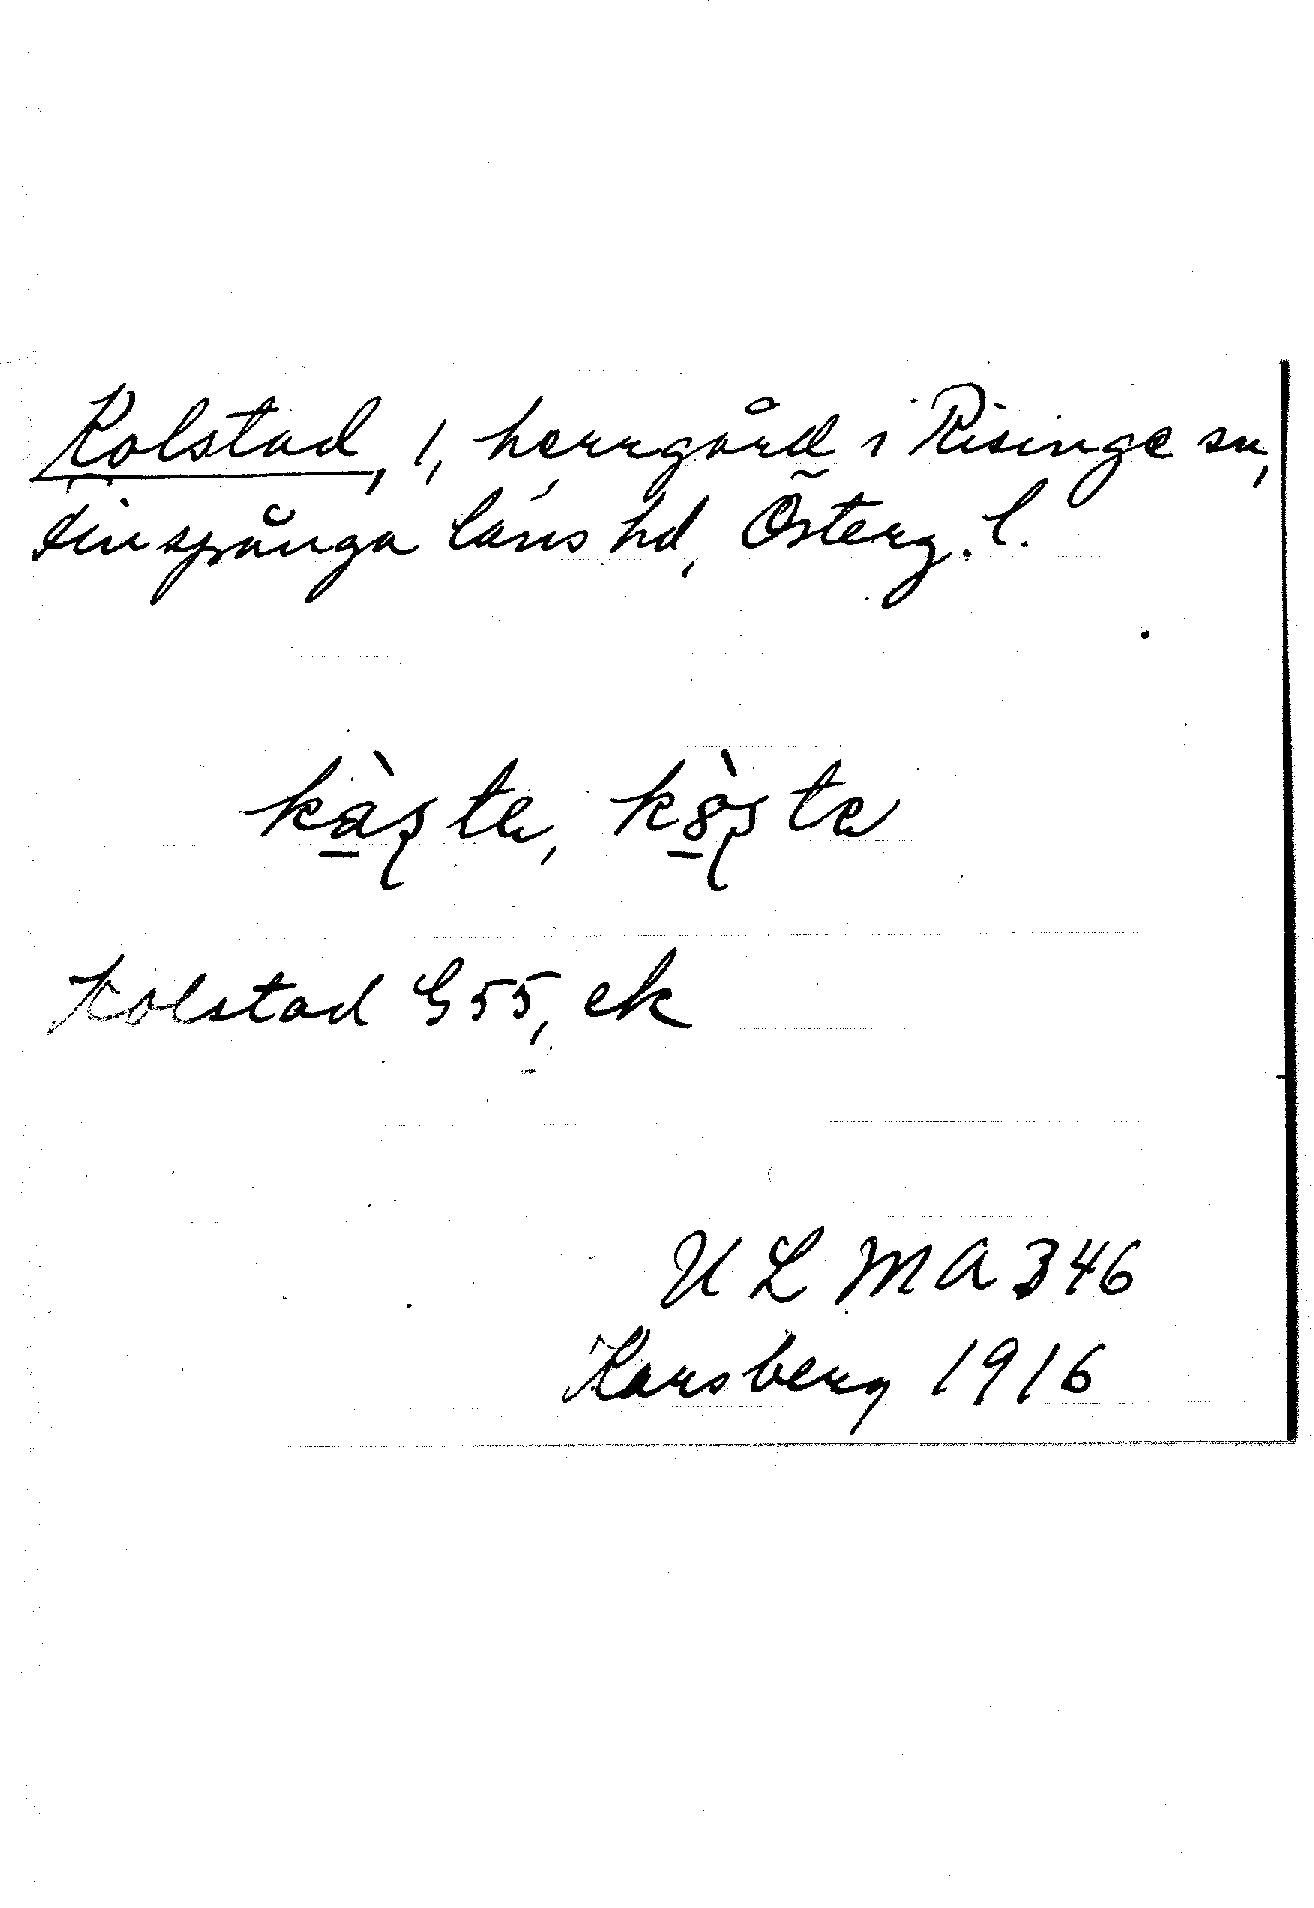 Kolstad, 1, herrgård i Risinge sn,
Finspånga läns hd, Österg. l.
kàʂte, kòʂte
Kolstad G 55, ek
ULMA 346
Karsberg 1916